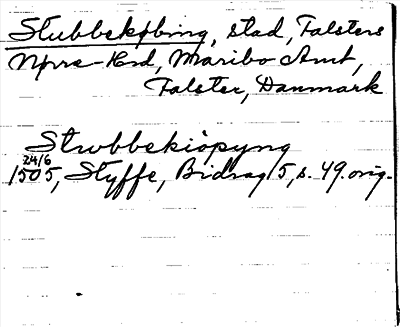 Stubbekøbing, stad, Falsters
Nørre-Hrd, Maribo Amt,
Falster, Danmark
Strwbbekiøpyng
24/6
1505, Styffe, Bidrag 5, s. 49. orig.